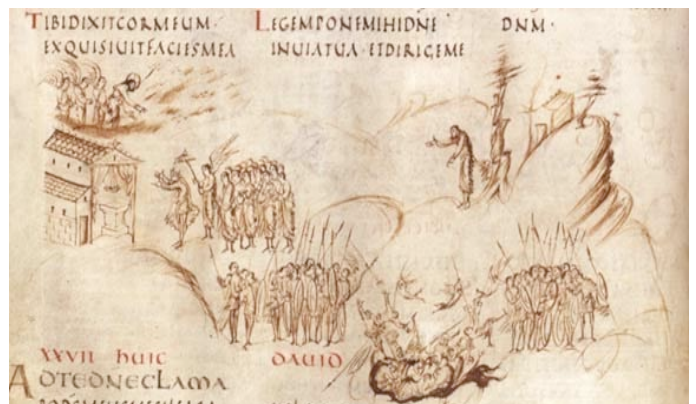 TIBIDIXITCORMEUM·
EXQUISIUITFACIESMEA
LEGEMPONEMIHIDNE
INUIATUA·ETDIRIGEME
DNM·
XXVII huic
DAUID
ADTEDNECLAMA